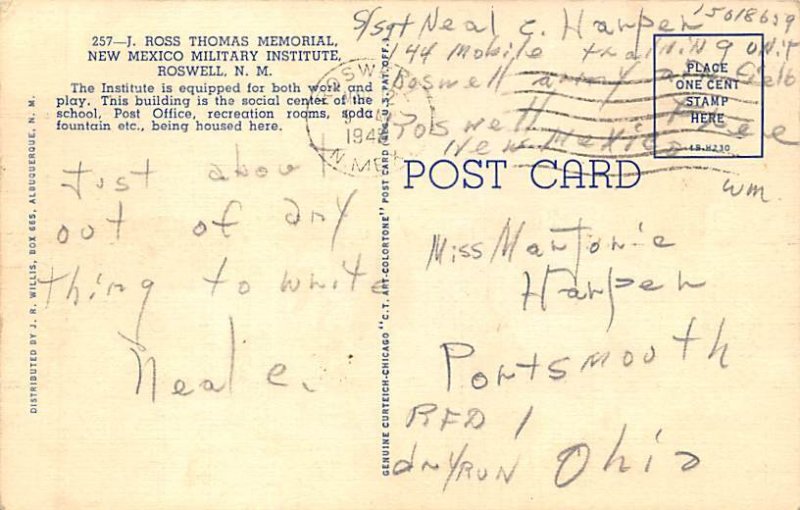 S/sgt Neal C. Harper 15018659
144 Mobile training unit
Roswell army air field
Roswell Free
New Mexico
257—J. ROSS THOMAS MEMORIAL,
NEW MEXICO MILITARY INSTITUTE,
ROSWELL, N. M.
The Institute is equipped for both work and
play. This building is the social center of the
school, Post Office, recreation rooms, soda
fountain etc., being housed here.
ROSWELL
194
N. MEX
PLACE
ONE CENT
STAMP
HERE
4B-H230
POST CARD
wm.
Just about
out of any
thing to write
Neal C.
Miss Marjorie
Harper
Portsmouth
RFD 1
dry RUN Ohio
DISTRIBUTED BY J. R. WILLIS, BOX 665, ALBUQUERQUE, N. M.
GENUINE CURTEICH-CHICAGO "C.T. ART-COLORTONE" POST CARD (REG. U.S. PAT. OFF.)